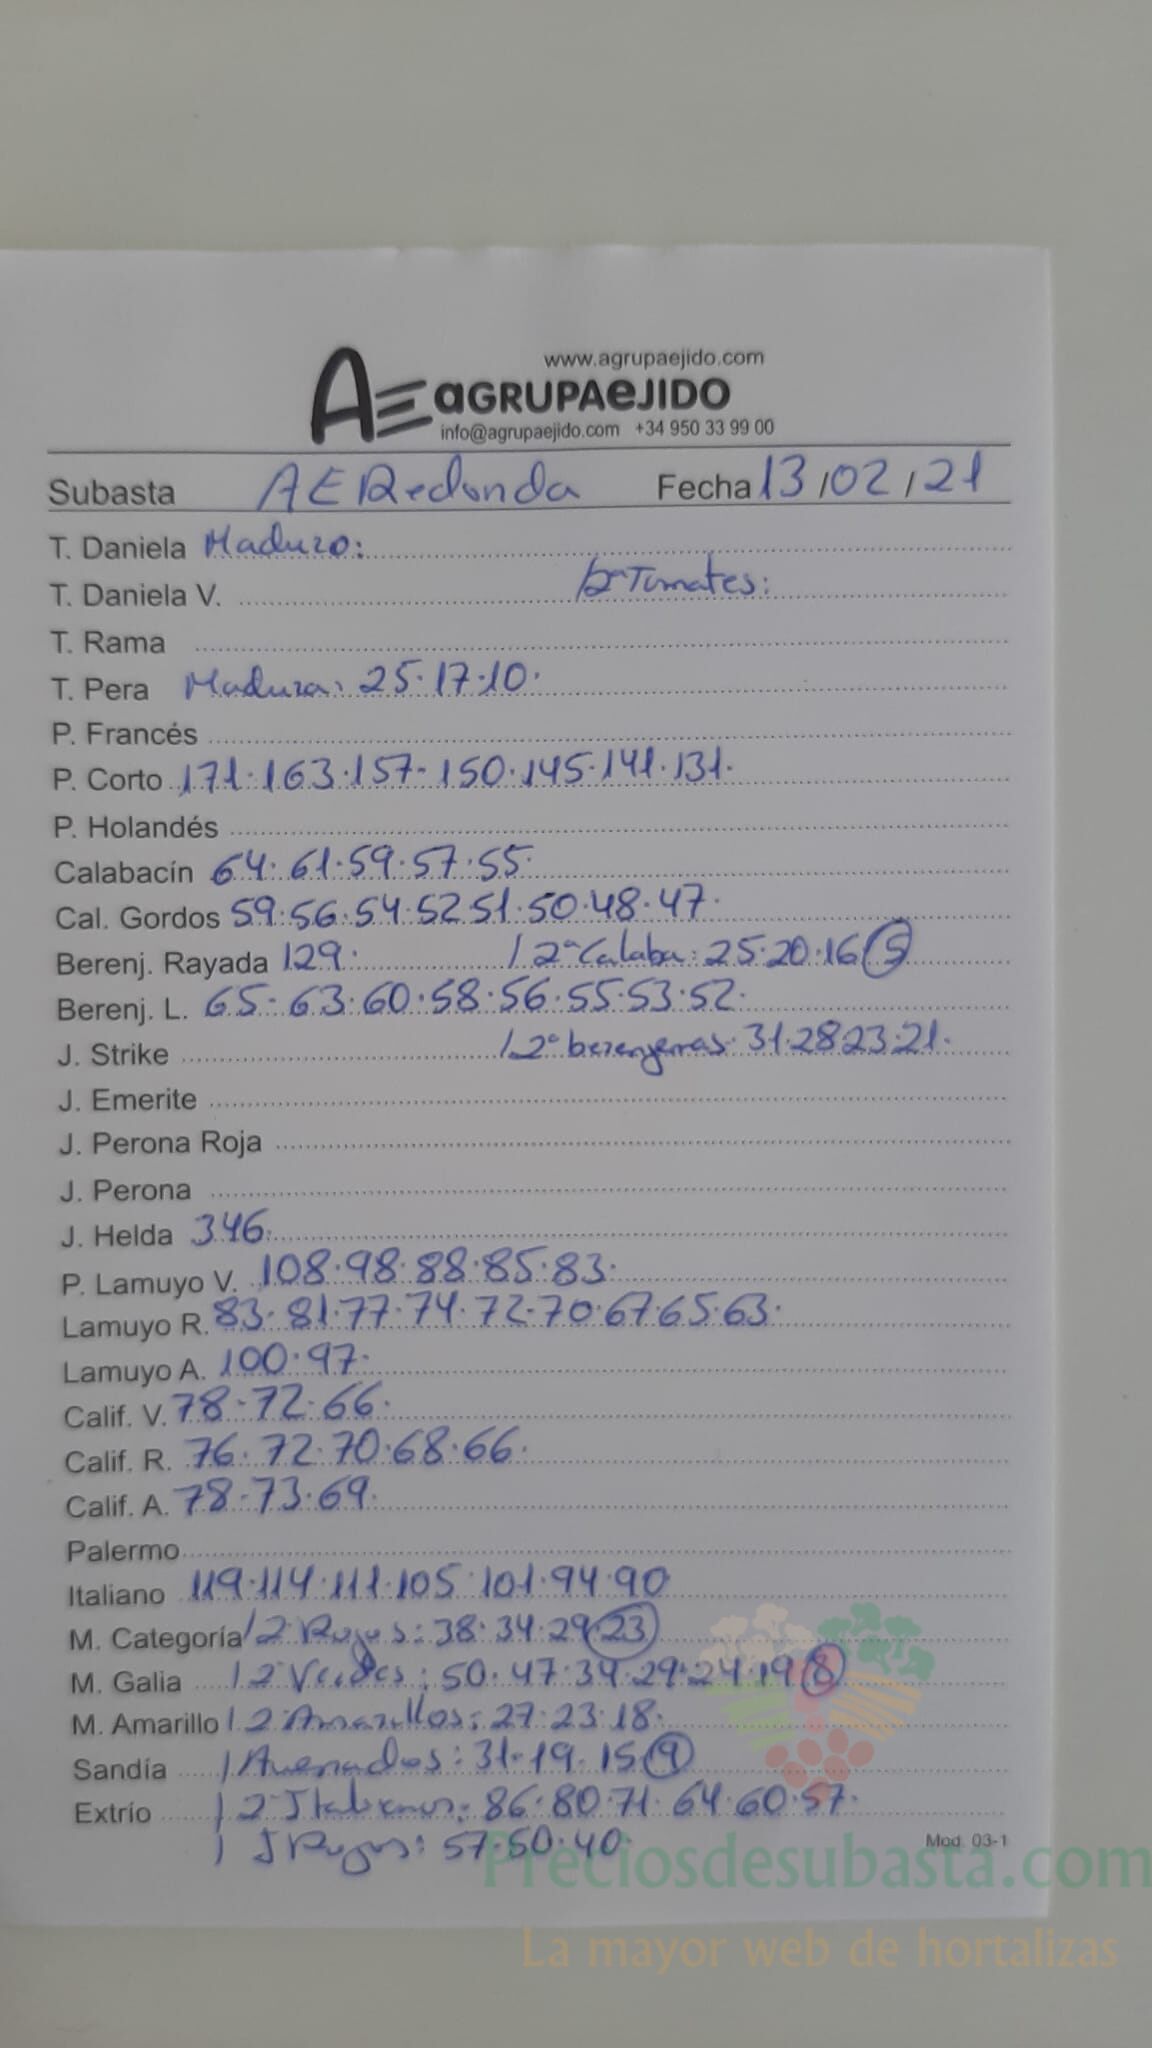 www.agrupaejido.com
AE aGRUPAeJIDO
info@agrupaejido.com +34 950 33 99 00
Subasta AE Redonda Fecha 13/02/21
T. Daniela Maduro:
T. Daniela V. 2ª Tomates:
T. Rama
T. Pera Madura: 25·17·10·
P. Francés
P. Corto 171·163·157-150·145·141·131·
P. Holandés
Calabacín 64·61·59·57·55·
Cal. Gordos 59·56·54·52 51·50·48·47·
Berenj. Rayada 129· / 2ª Calaba: 25·20·16 5
Berenj. L. 65-63·60·58·56·55·53·52·
J. Strike / 2ª berenjenas 31·28 23·21·
J. Emerite
J. Perona Roja
J. Perona
J. Helda 346·
P. Lamuyo V. 108·98·88·85·83·
Lamuyo R. 83·81·77·74·72·70·67·65·63·
Lamuyo A. 100·97·
Calif. V. 78-72·66·
Calif. R. 76·72·70·68·66·
Calif. A. 78-73·69·
Palermo
Italiano 119·114·111·105·101·94·90
M. Categoría / 2ª Rojos: 38·34·29 23
M. Galia / 2ª Verdes: 50·47·34·29·24·19 8
M. Amarillo / 2ª Amarillos: 27·23·18·
Sandía / Avenados: 31-19·15 9
Extrío / 2 Italianos: 86·80·71·64·60·57·
/ I Rojos: 57·50·40·
Mod. 03-1
Preciosdesubasta.com
La mayor web de hortalizas